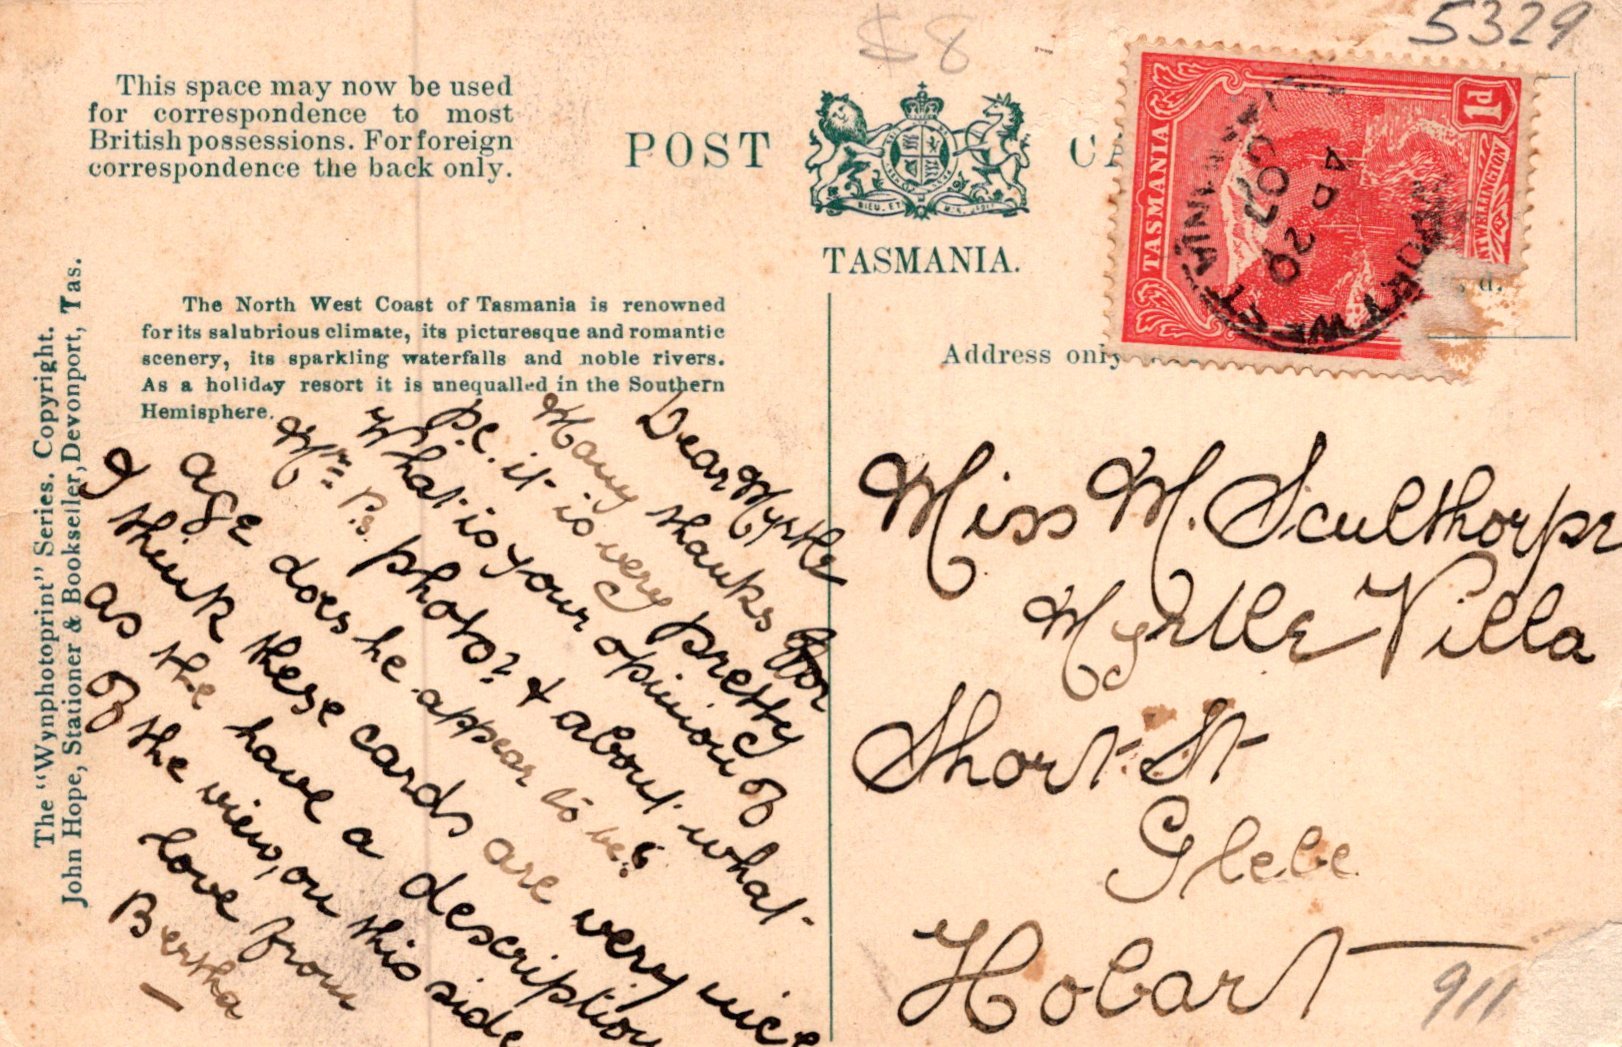 5329
$8
This space may now be used
for correspondence to most
British possessions. For foreign
correspondence the back only.
POST
TASMANIA.
1d
TASMANIA
MT WELLINGTON
TASMANIA
AP 20
07
The North West Coast of Tasmania is renowned
for its salubrious climate, its picturesque and romantic
scenery, its sparkling waterfalls and noble rivers.
As a holiday resort it is unequalled in the Southern
Hemisphere.
The "Wynphotoprint" Series. Copyright.
John Hope, Stationer & Bookseller, Devonport, Tas.
Address only
Dear Myrtle
Many thanks for
p.c. it is very pretty
What is your opinion of
Mr. P's. photo? & about what
age does he appear to be?
I think these cards are very nice
as the have a description
of the view, on this side
love from
Bertha
Miss M. Sculthorpe
Myrtle Villa
Short St
Glebe
Hobart
911